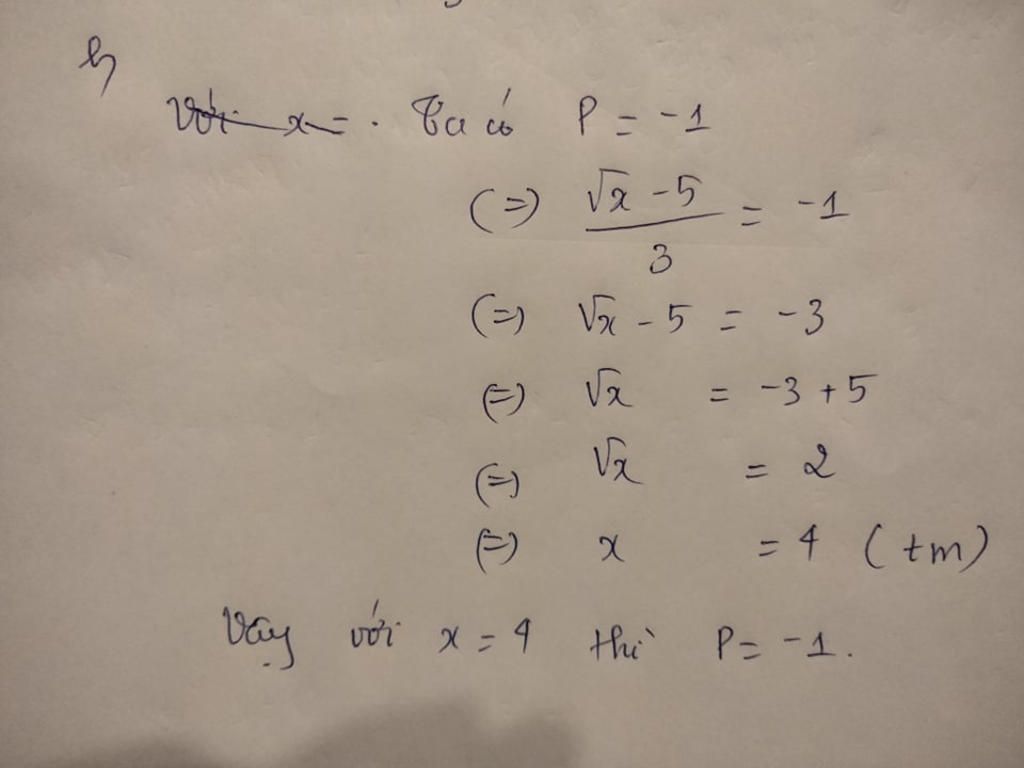 b,
Với x = . Ta có P = -1
(=) \frac{\sqrt{x} - 5}{3} = -1
(=) \sqrt{x} - 5 = -3
(=) \sqrt{x} = -3 + 5
(=) \sqrt{x} = 2
(=) x = 4 (tm)
Vậy với x = 4 thì P = -1.